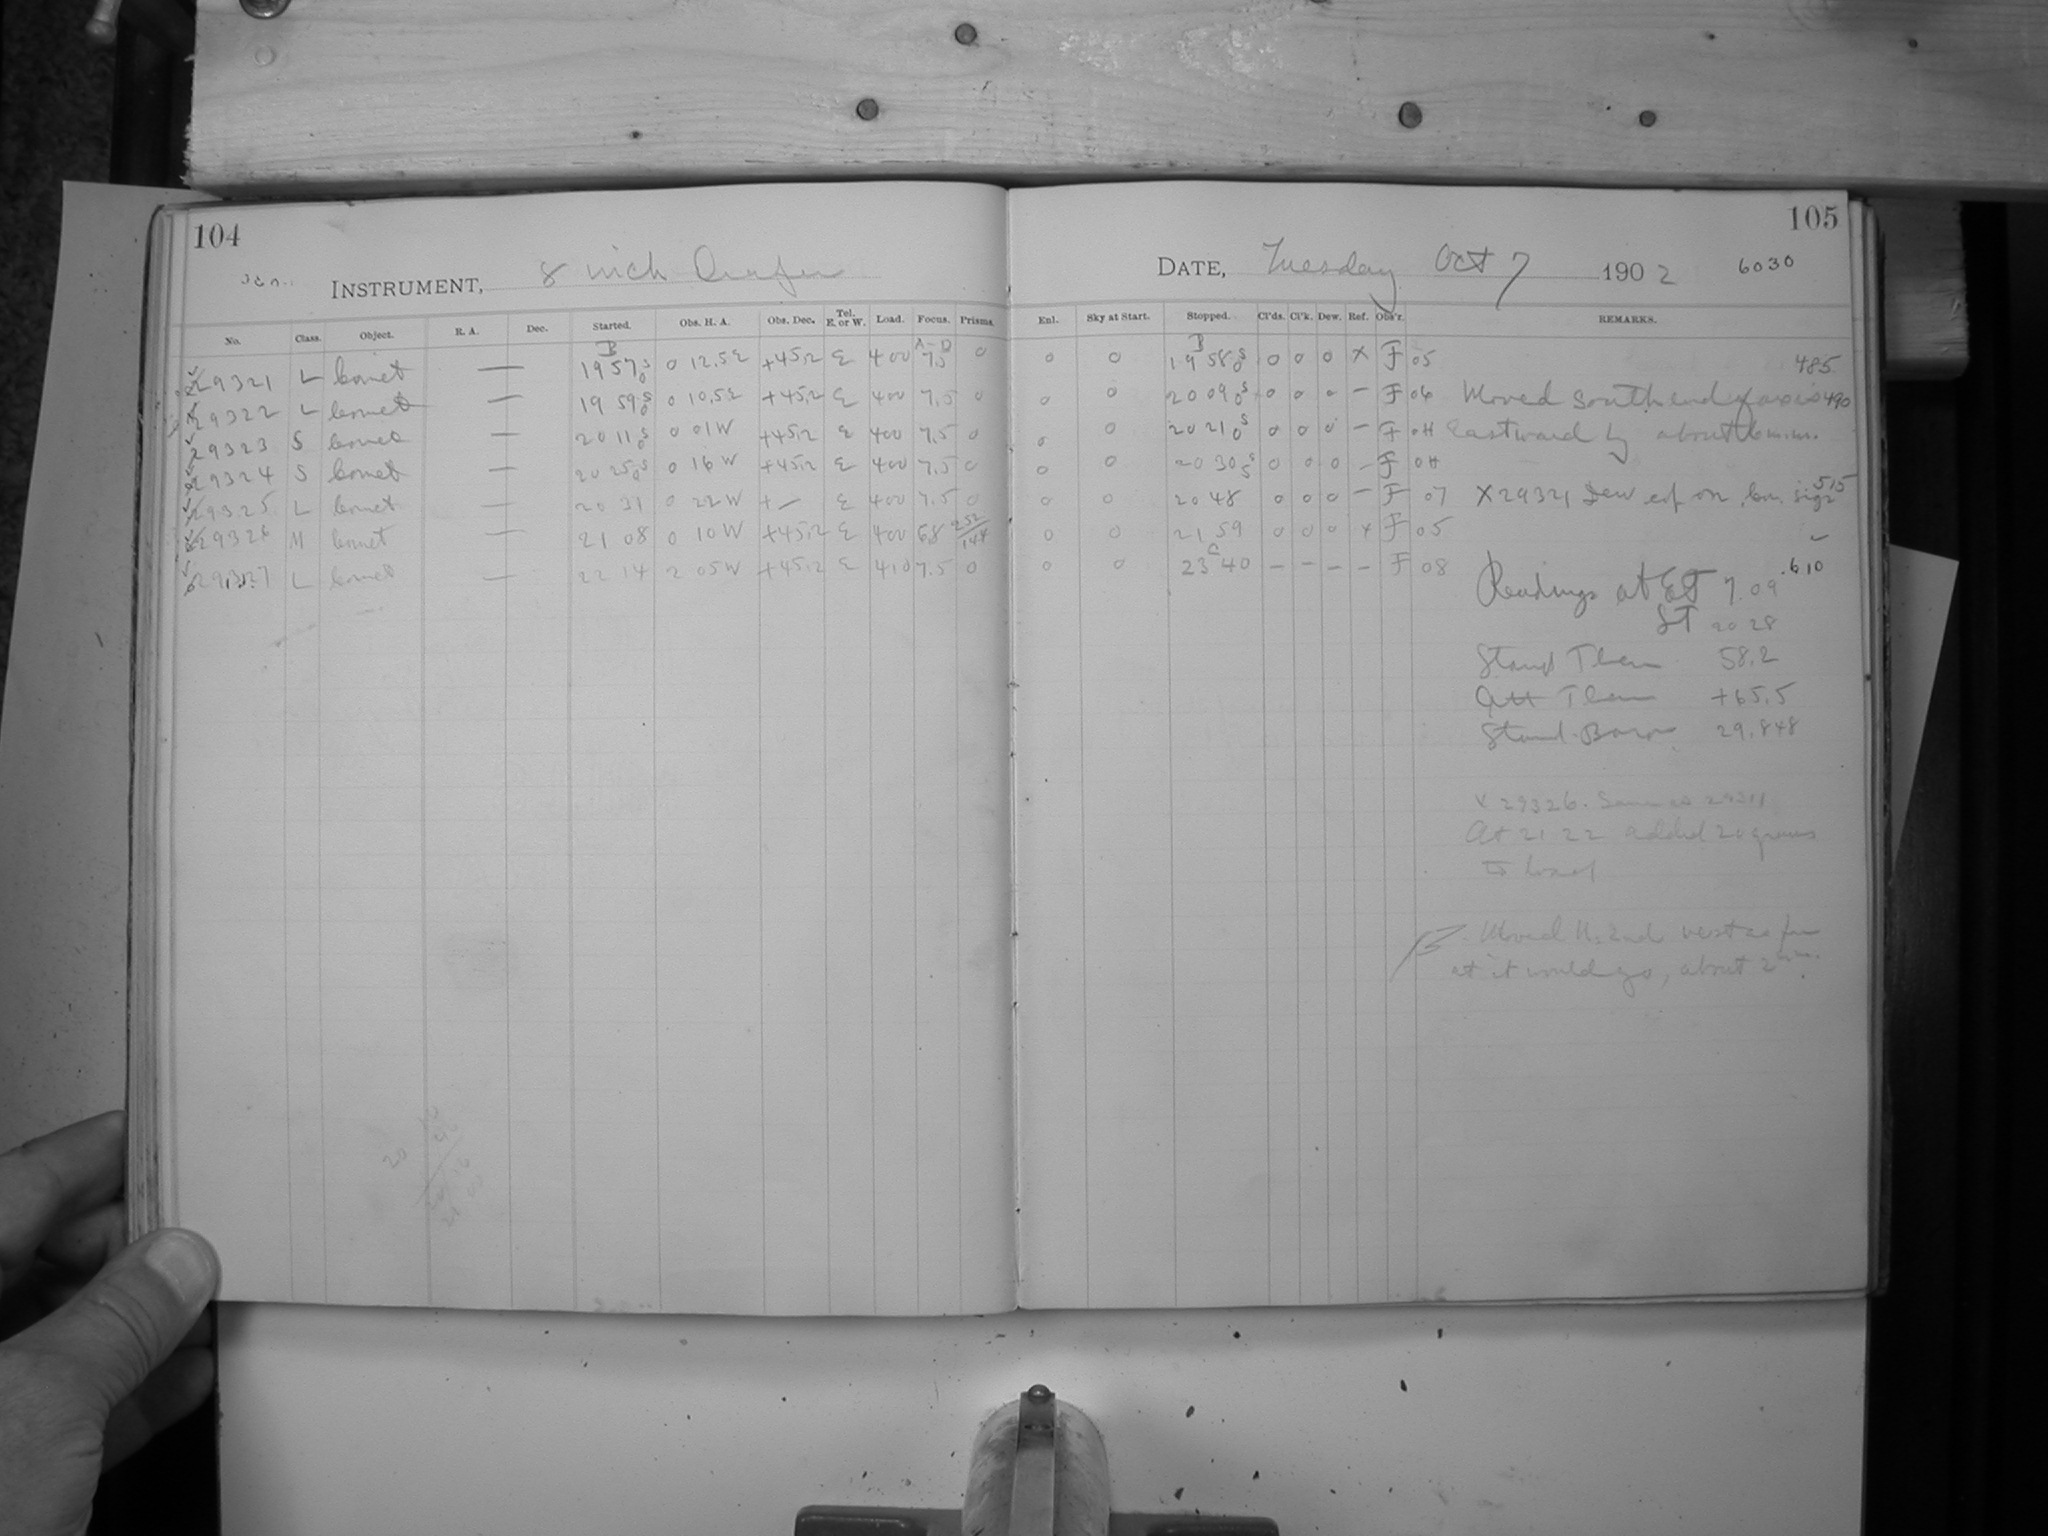 104
INSTRUMENT, 8 inch
No. Class. Object. R. A. Dec. Started. Obs. H. A. Obs. Dec. Tel. E. or W. Load. Focus. Prisms.
29321 L Comet — 19 57 0 12.5E +45.2 E 400 A-D 7.5 0
29322 L Comet — 19 59 0 10.5E +45.2 E 400 7.5 0
29323 S Comet — 20 11 0 01W +45.2 E 400 7.5 0
29324 S Comet — 20 25 0 16W +45.2 E 400 7.5 0
29325 L Comet — 20 31 0 22W + — E 400 7.5 0
29326 M Comet 21 08 0 10W +45.2 E 400 6.8 252/144
29327 L Comet — 22 14 2 05W +45.2 E 410 7.5 0
20
105
DATE, Tuesday Oct 7 1902 6030
Enl. Sky at Start. Stopped. Cl'ds. Cl'k. Dew. Ref. Obs'r. REMARKS.
0 0 19 58 0 0 0 X F 05 485
0 0 20 09 0 0 0 — F 06 Moved south end of axis 490
0 0 20 21 0 0 0 — F 0H Eastward by about 6 m.m.
0 0 20 30 0 0 0 — F 0H
0 0 20 48 0 0 0 — F 07 X29321 Dew on 515
0 0 21 59 0 0 0 X F 05
0 0 23 40 — — — — F 08 .610
Readings at ET 7.09
ST 20 28
Stand Ther 58.2
Att Ther +65.5
Stand. Baro 29.848
X 29326. Same as 29311
At 21 22 added 20 grams
to load
Moved N. end west as far
at it would go, about 2 mm.